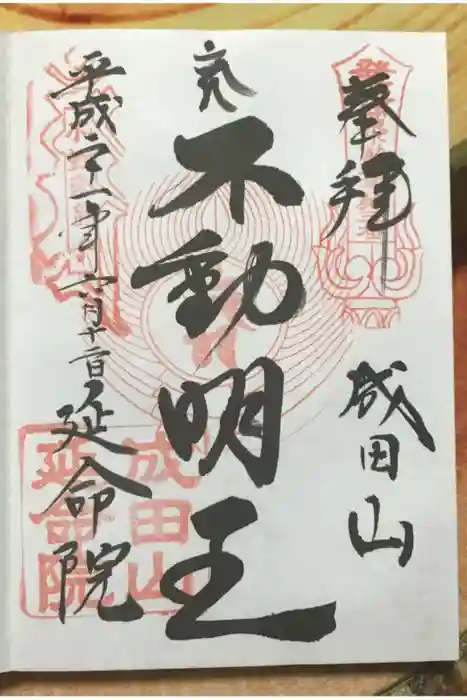 奉拝
成田山
不動明王
平成二十一年六月十二日
延命院
成田山
延命院